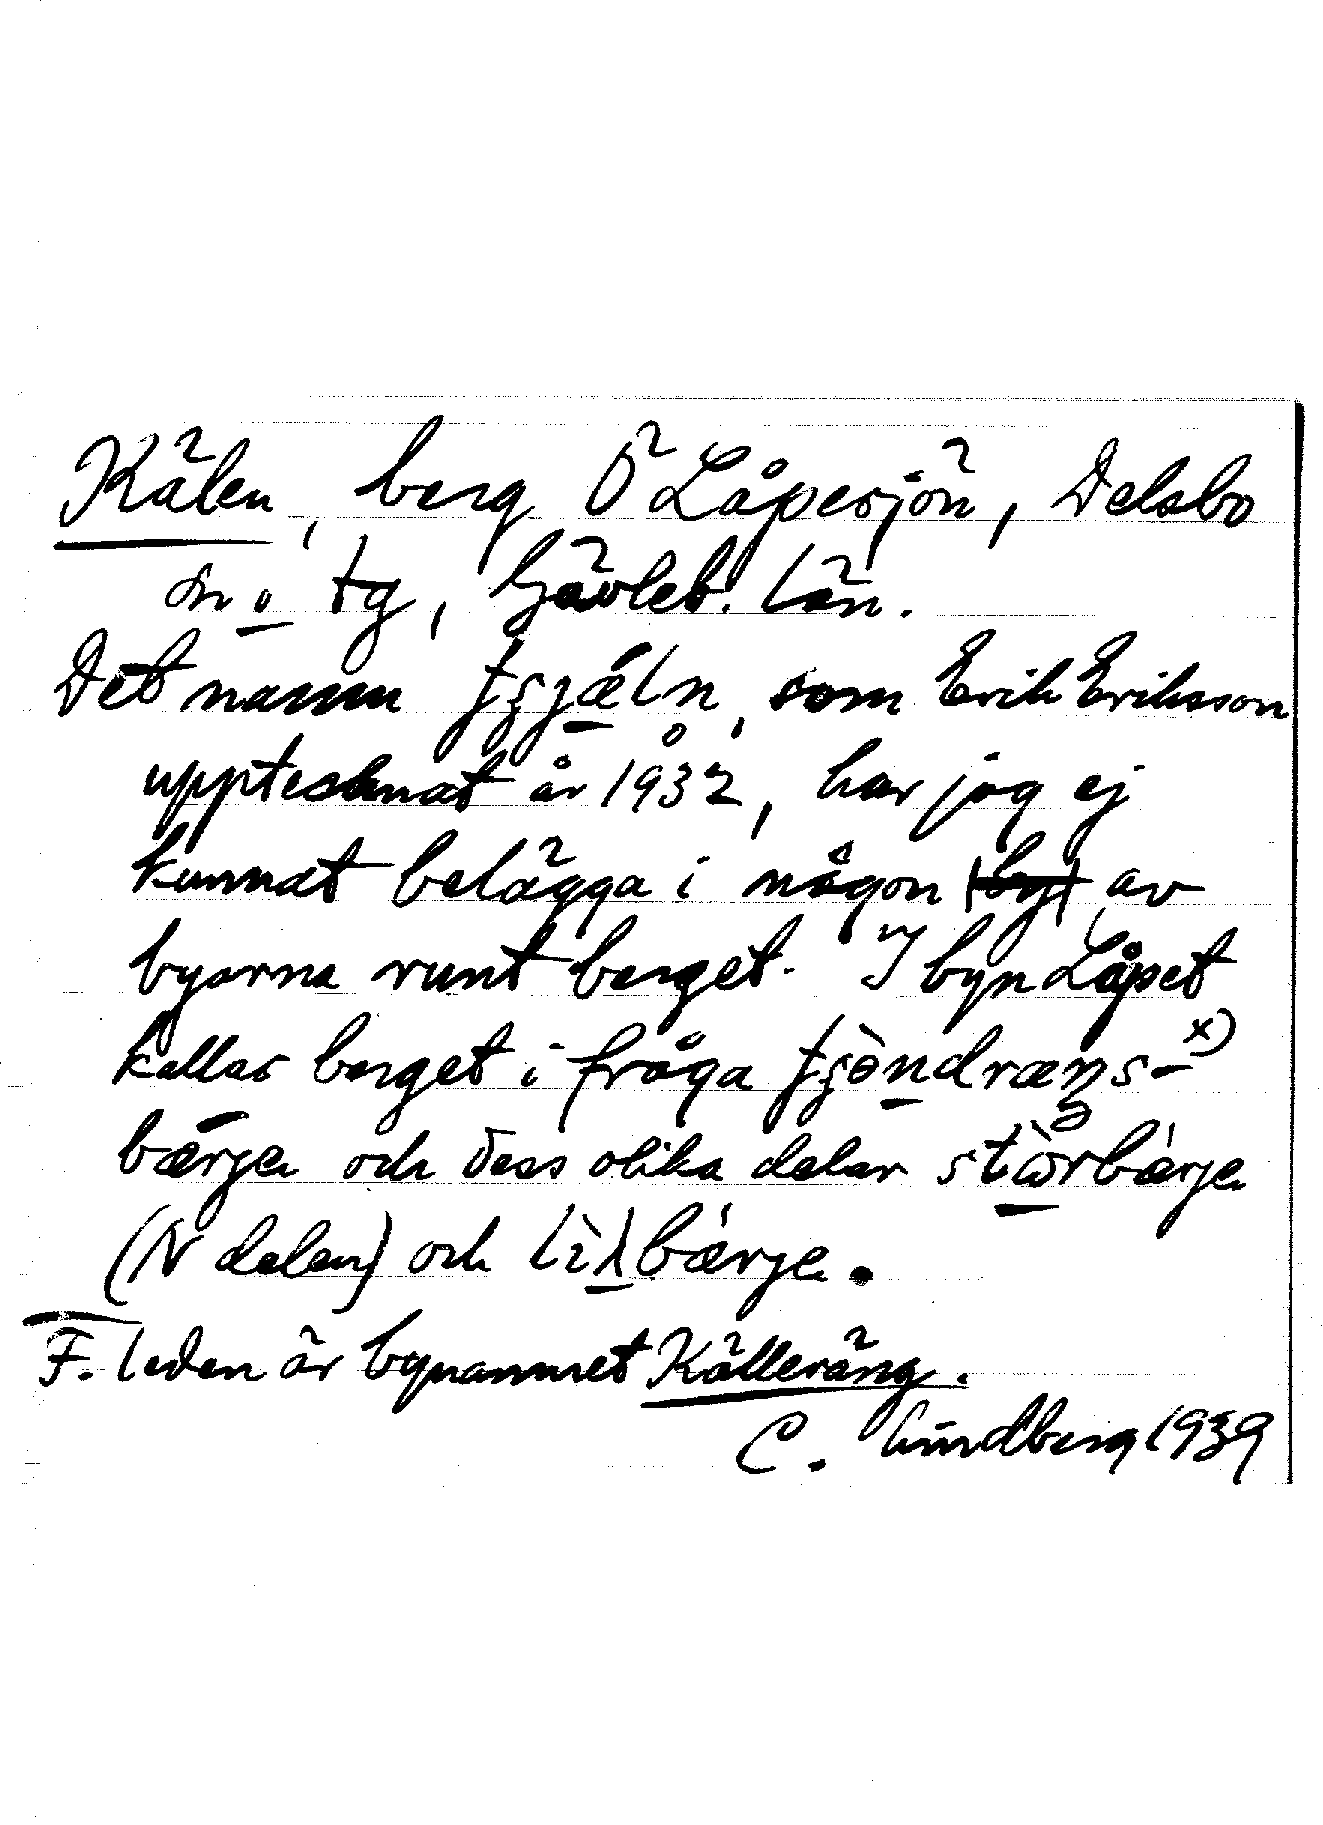 Kälen, berg Ö Låpesjön, Delsbo
sn o tg, Gävleb. län.
Det namn som Erik Eriksson
upptecknat år 1932, har jag ej
kunnat belägga i någon (by) av
byarna runt berget. I byn Låpet
kallas berget i fråga x)
bærjea och dess olika delar
(N delen) och
F. leden är bynamnet Källeräng.
C. Lundberg 1939